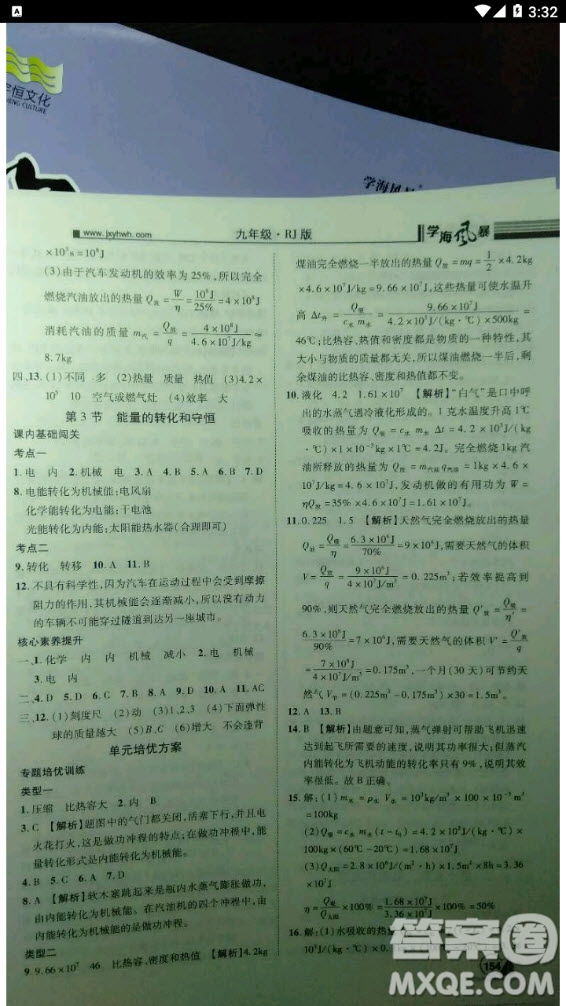 3:32
宇恒文化
HENG CULTURE
学海风暴
www.jxyhwh.com
九年级·RJ版
学海风暴
×10³s=10⁸J
(3)由于汽车发动机的效率为25%,所以完全
燃烧汽油放出的热量Q放=W/η=10⁸J/25%=4×10⁸J
消耗汽油的质量m汽=Q放/q=4×10⁸J/4.6×10⁷J/kg≈
8.7kg
四、13.(1)不同 多 (2)质量 质量 热值 (3)4.2×
10⁵ 10 空气或燃气灶 (4)效率 大
第3节 能量的转化和守恒
课内基础闯关
考点一
1.电 内 2.机械 电 3.A 4.B 5.B 6.B 7.D
8.电能转化为机械能:电风扇
化学能转化为电能:干电池
光能转化为内能:太阳能热水器(合理即可)
考点二
9.转化 转移 10.A 11.B
12.不具有科学性,因为汽车在运动过程中会受到摩擦
阻力的作用,其机械能会逐渐减小,所以没有动力
的车辆不可能穿过隧道到达另一座城市。
核心素养提升
一、1.化学 内 内 机械 减小 2.电 机械
3.电 内
二、4.D 5.D 6.C 7.B 8.B 9.D 10.A 11.AC
三、12.(1)刻度尺 (2)动 (3)1、2 (4)下面弹性
球的质量越大 (5)B、C (6)增大 不会违背
单元培优方案
专题培优训练
类型一
1.压缩 比热容大 2.内 B
3.C 【解析】题图中的气门都关闭,活塞下行,并且火
花打火,这是做功冲程的特点;在做功冲程中,能
量转化形式是内能转化为机械能。
4.B 5.A 6.A 7.D
8.A 【解析】软木塞跳起来是瓶内水蒸气膨胀做功,
由内能转化为机械能。在汽油机的四个冲程中,
由内能转化为机械能的是做功冲程。
类型二
9.9.66×10⁷ 46 比热容、密度和热值 【解析】4.2kg
煤油完全燃烧一半放出的热量Q放=mq=1/2×4.2kg
×4.6×10⁷J/kg=9.66×10⁷J,这些热量可使水温升
高Δt升=Q吸/c水m水=9.66×10⁷J/4.2×10³J/(kg·℃)×500kg=
46℃;比热容、热值和密度都是物质的一种特性,其
大小与物质的质量都无关,所以煤油燃烧一半后,剩
余煤油的比热容、密度和热值都不变。
10.液化 4.2 1.61×10⁷ 【解析】“白气”是口中呼
出的水蒸气遇冷液化形成的。1克水温度升高1℃
吸收的热量为Q吸=c水m水Δt=4.2×10³J/(kg
·℃)×1×10⁻³kg×1℃=4.2J。完全燃烧1kg汽
油所释放的热量Q放=m汽油q汽油=1kg×4.6×
10⁷J/kg=4.6×10⁷J,发动机做的有用功为W=
ηQ放=35%×4.6×10⁷J=1.61×10⁷J。
11.0.225 1.5 【解析】天然气完全燃烧放出的热量
Q放=Q吸/η=6.3×10⁶J/70%=9×10⁶J,需要天然气的体积
V=Q放/q=9×10⁶J/4×10⁷J/m³=0.225m³;若效率提高到
90%,则天然气完全燃烧放出的热量Q′放=Q吸/η′=
6.3×10⁶J/90%=7×10⁶J,需要天然气的体积V′=Q′放/q
=7×10⁶J/4×10⁷J/m³=0.175m³,一个月(30天)可节约天
然气V节=(0.225m³-0.175m³)×30=1.5m³
12.A 13.A
14.B 【解析】由题意可知,蒸气弹射可帮助飞机迅速
达到起飞所需要的速度,说明其功率很大;但蒸汽
内能转化为飞机动能的转化率只有9%,说明其效
率低。故B正确。
15.解:(1)m水=ρ水V水=10³kg/m³×100×10⁻³m³
=100kg
(2)Q吸=c水m水(t-t₀)=4.2×10³J/(kg·℃)×
100kg×(60℃-20℃)=1.68×10⁷J
(3)Q太阳=2.8×10⁶J/(m²·h)×1.5m²×8h=3.36
×10⁷J
η=Q吸/Q太阳×100%=1.68×10⁷J/3.36×10⁷J×100%=50%
16.解:(1)水吸收的热量
154
答案圈
MXQE.COM